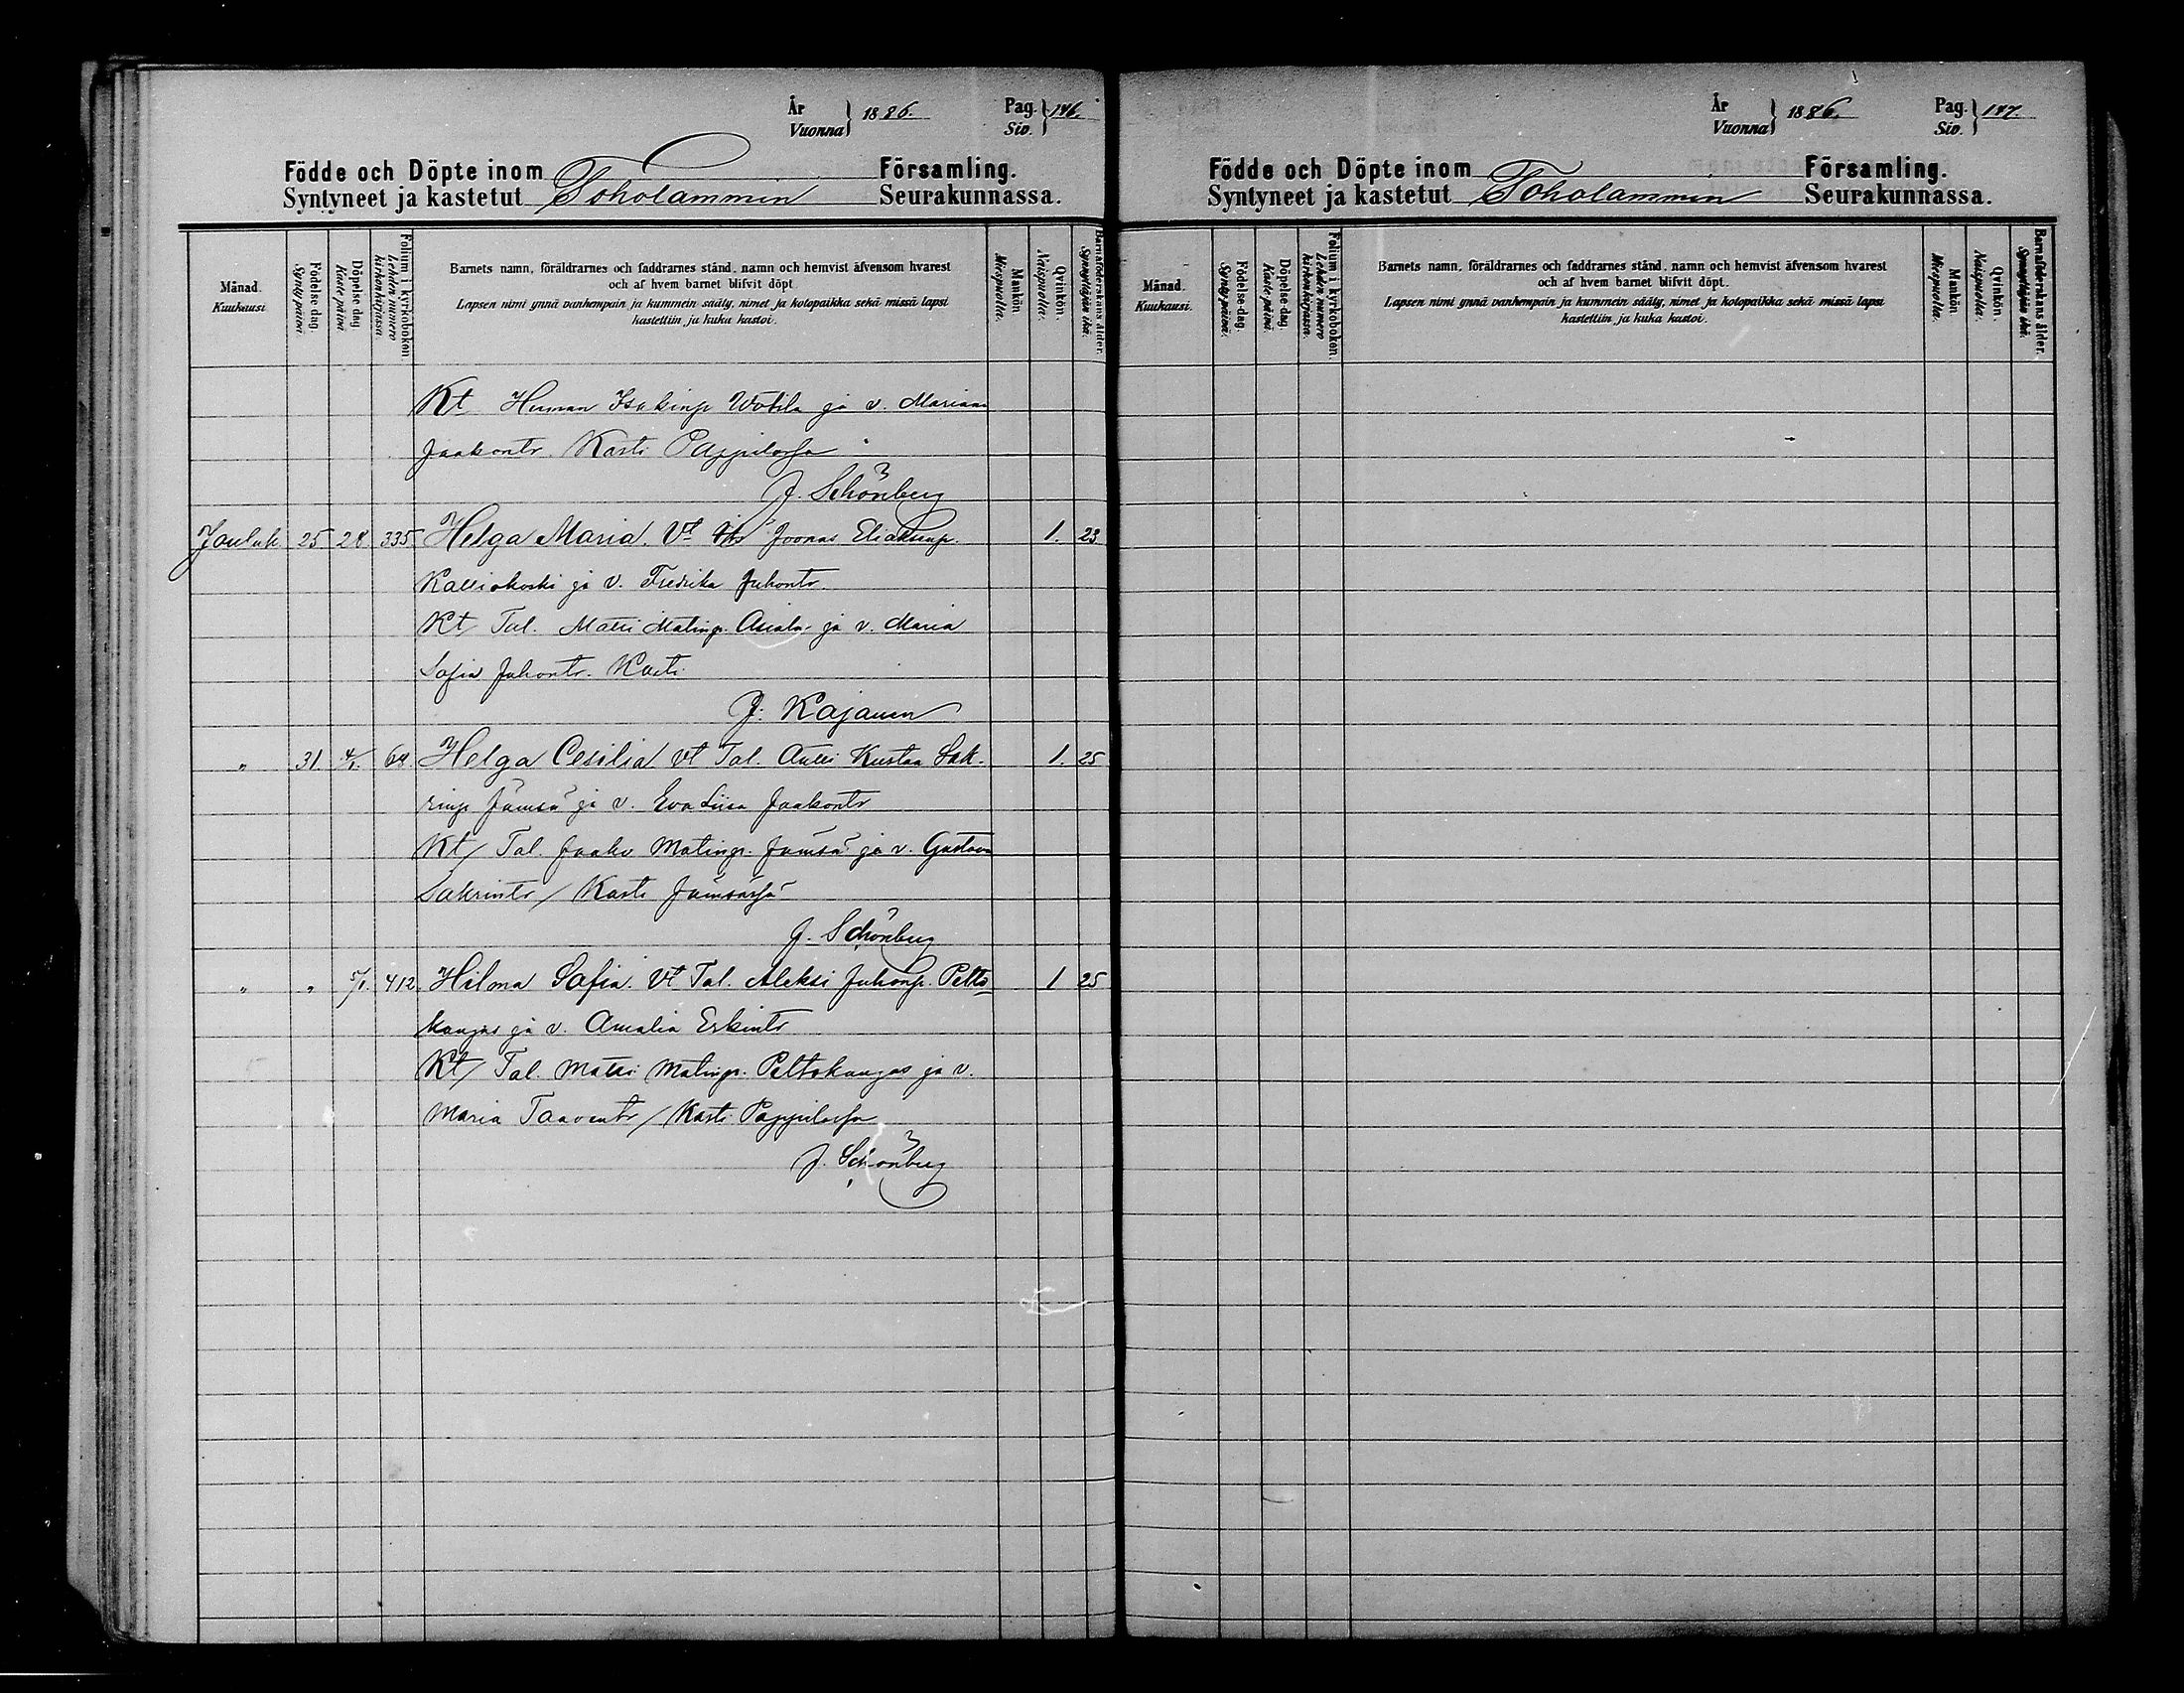 År Vuonna } 1886. Pag. Siv. } 146.
Födde och Döpte inom Församling.
Syntyneet ja kastetut Toholammin Seurakunnassa.
Månad. Kuukausi
Födelse-dag. Synty päivä.
Döpelse-dag. Kaste päivä.
Folium i kyrkoboken. Lehden numero kirkon kirjassa.
Barnets namn, föräldrarnes och faddrarnes stånd, namn och hemvist äfvensom hvarest
och af hvem barnet blifvit döpt.
Lapsen nimi ynnä vanhempain ja kummein sääty, nimet ja kotopaikka sekä missä lapsi
kastettiin ja kuka kastoi.
Mankön Miespuolia.
Qvinkön. Naispuolia.
Barnaföderskans ålder. Synnyttäjän ikä.
Kt Herman Isakinp ja v. Mariana
Jaakontr. Kasti Pappilassa
J. Schönberg
Jouluk 25 28 335. Helga Maria. Vt Joonas Eliaksenp. 1. 23
Kalliokoski ja v. Fredrika Juhontr.
Kt Tal. Matti Matinp. Asiala ja v. Maria
Safia Juhontr. Kasti
J. Kajanen
" 31. 4/1. 68 Helga Cesilia Vt Tal. Antti Kustaa Sak- 1. 25
rinp. Jämsä ja v. Eva Liisa Jaakontr
Kt / Tal. Jaako Matinp. Jämsä ja v. Gustava
Sakrintr / Kasti Jämsässä
J. Schönberg
" " 5/1. 412. Hilma Safia. Vt Tal. Aleksi Juhonp. Pelto- 1 25
kangas ja v. Amalia Erkintr
Kt / Tal. Matti Matinp. Peltokangas ja v.
Maria Taavontr / Kasti Pappilassa
J. Schönberg
År Vuonna } 1886. Pag. Siv. } 147.
Födde och Döpte inom Församling.
Syntyneet ja kastetut Toholammin Seurakunnassa.
Månad. Kuukausi.
Födelse-dag. Synty päivä.
Döpelse-dag. Kaste päivä.
Folium i kyrkoboken. Lehden numero kirkon kirjassa.
Barnets namn, föräldrarnes och faddrarnes stånd, namn och hemvist äfvensom hvarest
och af hvem barnet blifvit döpt.
Lapsen nimi ynnä vanhempain ja kummein sääty, nimet ja kotopaikka sekä missä lapsi
kastettiin ja kuka kastoi.
Mankön Miespuolia.
Qvinkön. Naispuolia.
Barnaföderskans ålder. Synnyttäjän ikä.